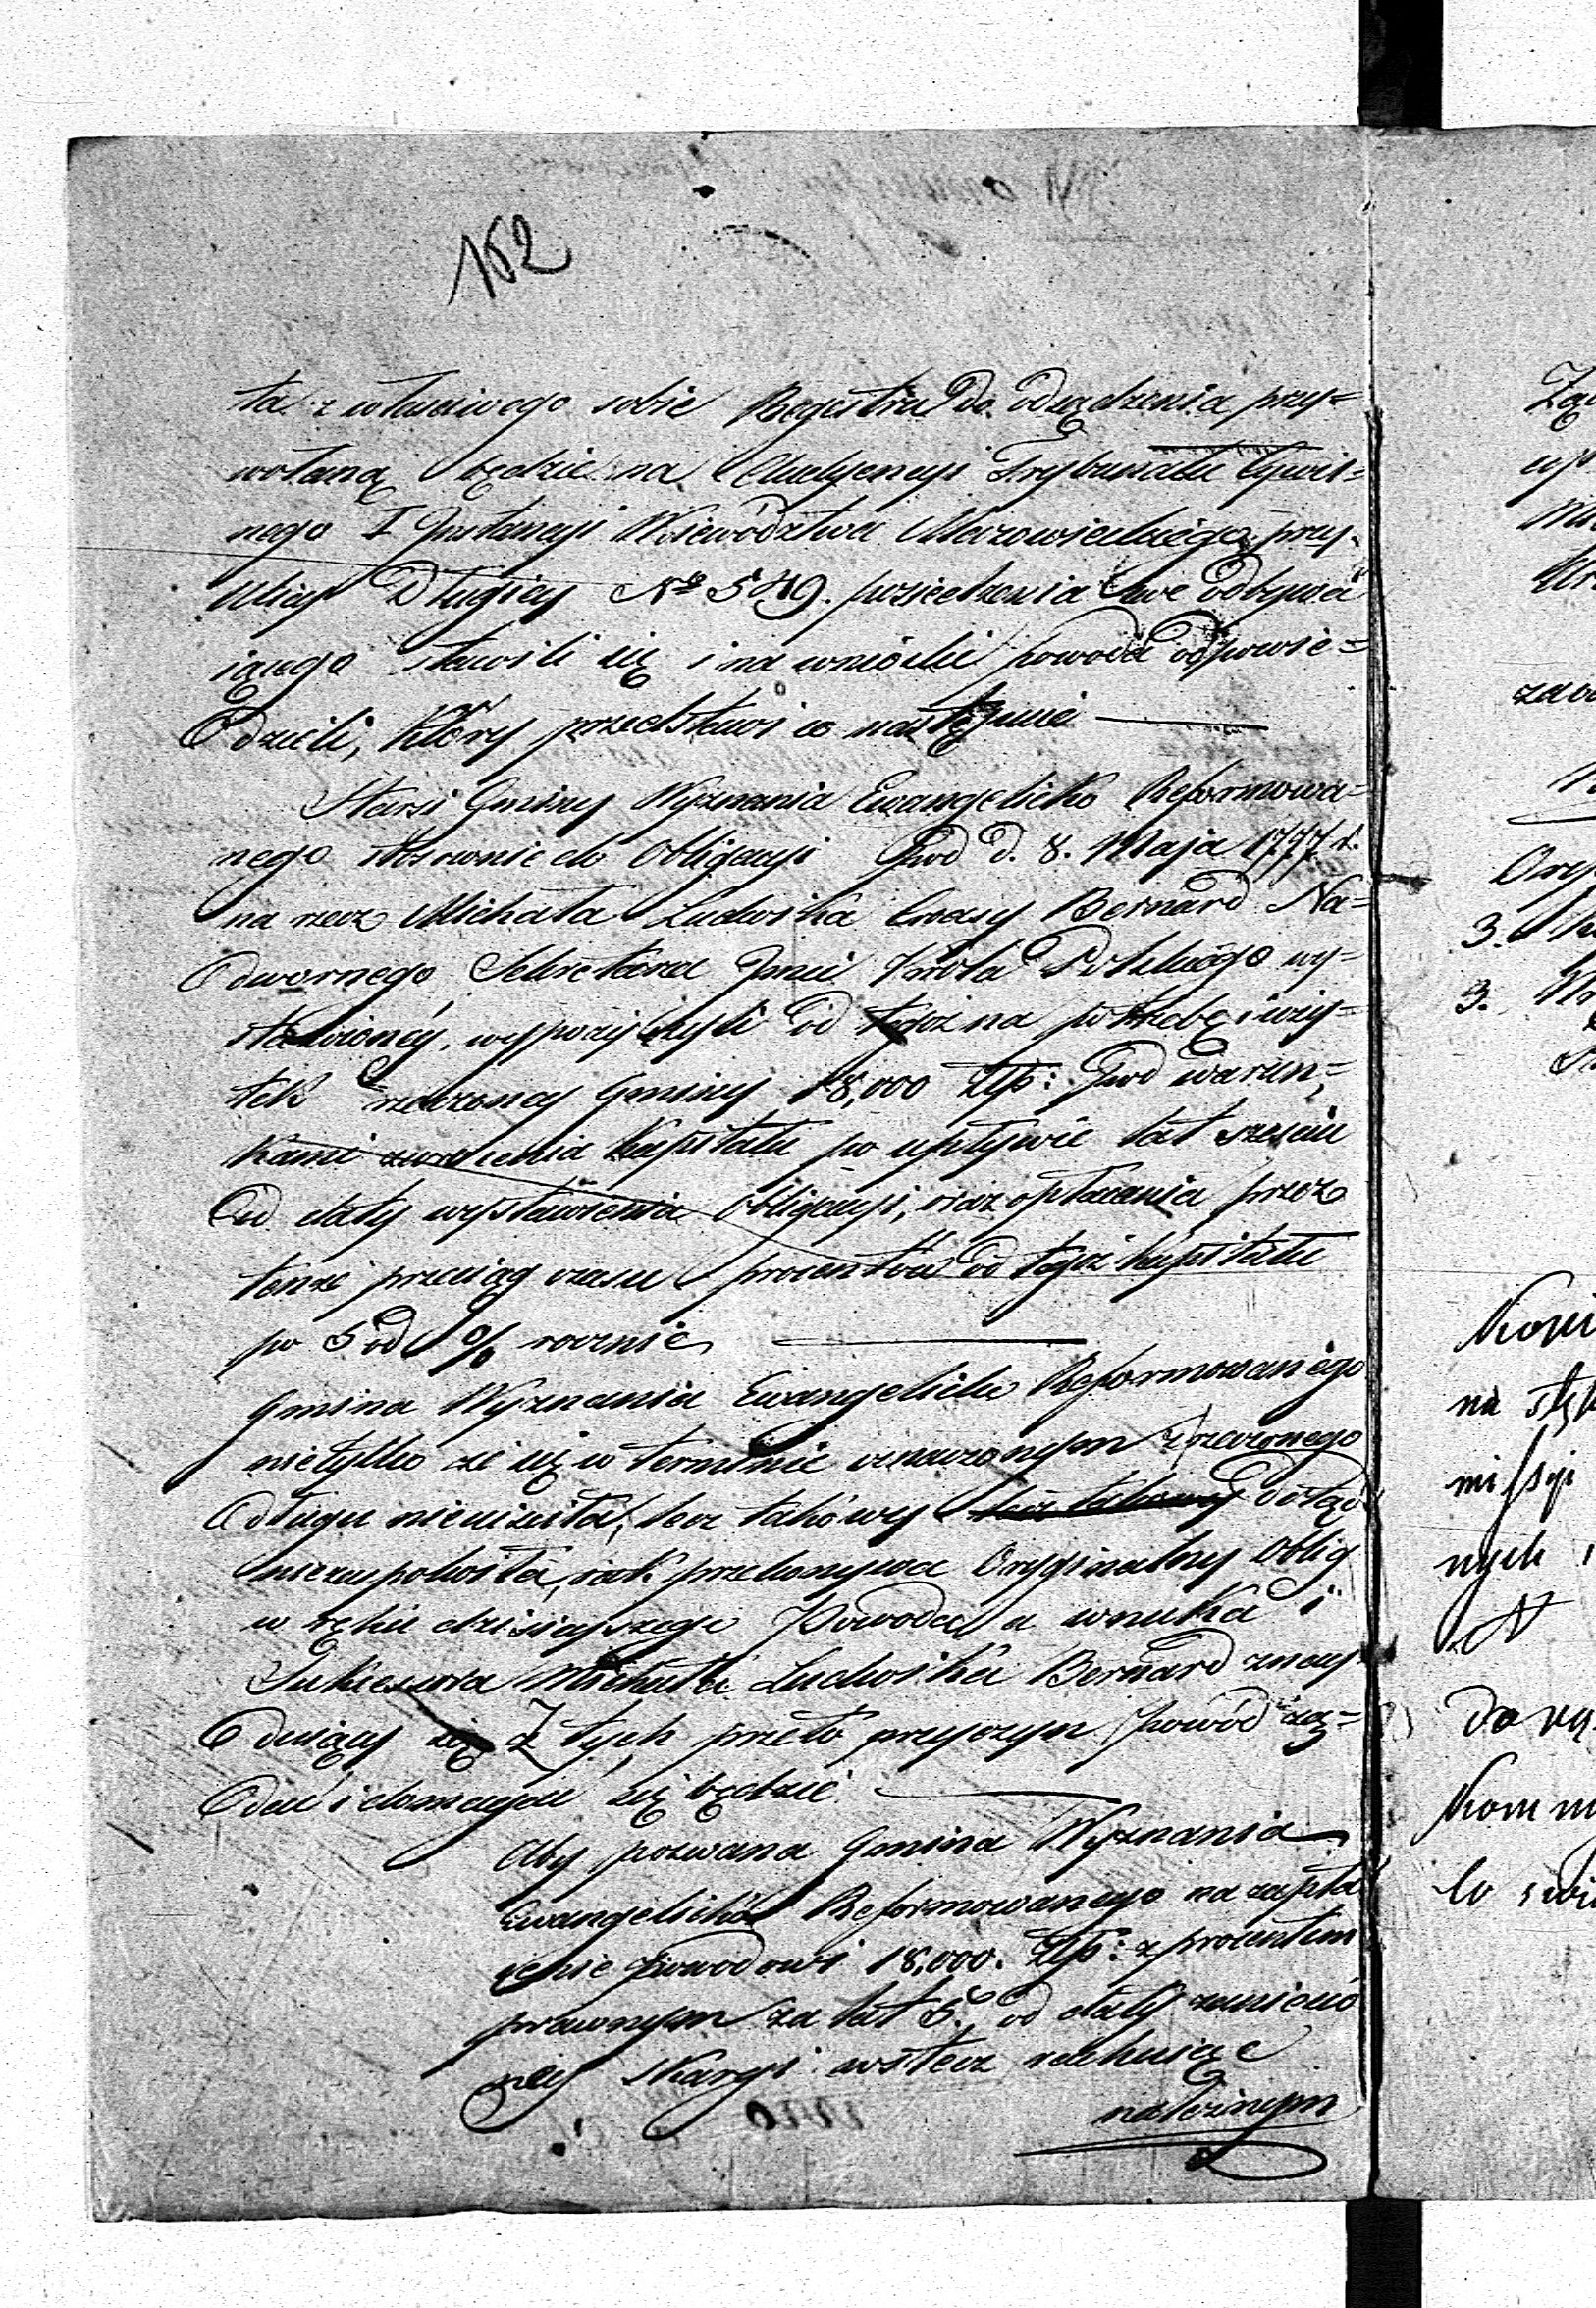 162
ta z właściwego sobie Regestru do osądzenia przy=
wołaną będzie na Audyencyi Trybunału Cywil=
nego I Instancyi Wojewódźtwa Mazowieckiego przy
Ulicy Długiey No 549. posiedzenia swe odbywa
iącego stawili się i na wniosek powoda odpowie=
dzieli, który przedstawi co następuie
Starsi Gminy Wyznania Ewangelicko Reformowa=
nego stosownie do Obligacyi pod d. 8. Maja 1777 r.
na rzecz Michała Ludwika Bernard Na=
dwornego Sekretarza Jmci Króla Polskiego wy=
stawioney, wypożyczyli od tegoż na potrzebę i uży=
tek rzeczoney Gminy 18,000 Złp: pod warun=
kami zwrócenia kapitału po upływie lat sześciu
od daty wystawienia obligacyi, oraz opłacania przez
tenże przeciąg czasu procentów od tegoż kapitału
po 5 od % rocznie
Gmina Wyznania Ewangelicko Reformowanego
nietylko że się w terminie oznaczonym z rzeczonego
długu nieuiściła, lecz takowy dotąd
niezaspokoiła, iak przekonywa Oryginalny Oblig
w ręku dzisiayszego Powoda a wnuka i
Sukcessora Michała Ludwika Bernard znay
duiący się Z tych przeto przyczyn powód żą=
dać i domagać się będzie
Aby pozwana Gmina Wyznania
Ewangelicko Reformowanego na zapła
cenie powodowi 18,000. Złp: z procentem
prawnym za lat 5. od daty zanieśio
ney skargi wstecz rachuiąc
należnym
3.
3.
na
nych